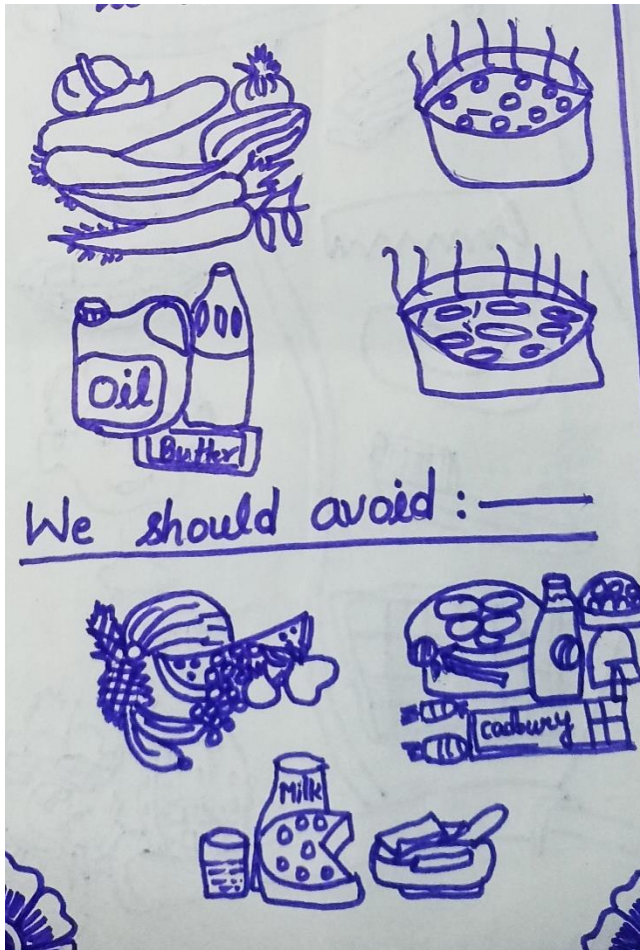 Oil
Butter
We should avoid :
cadbury
Milk